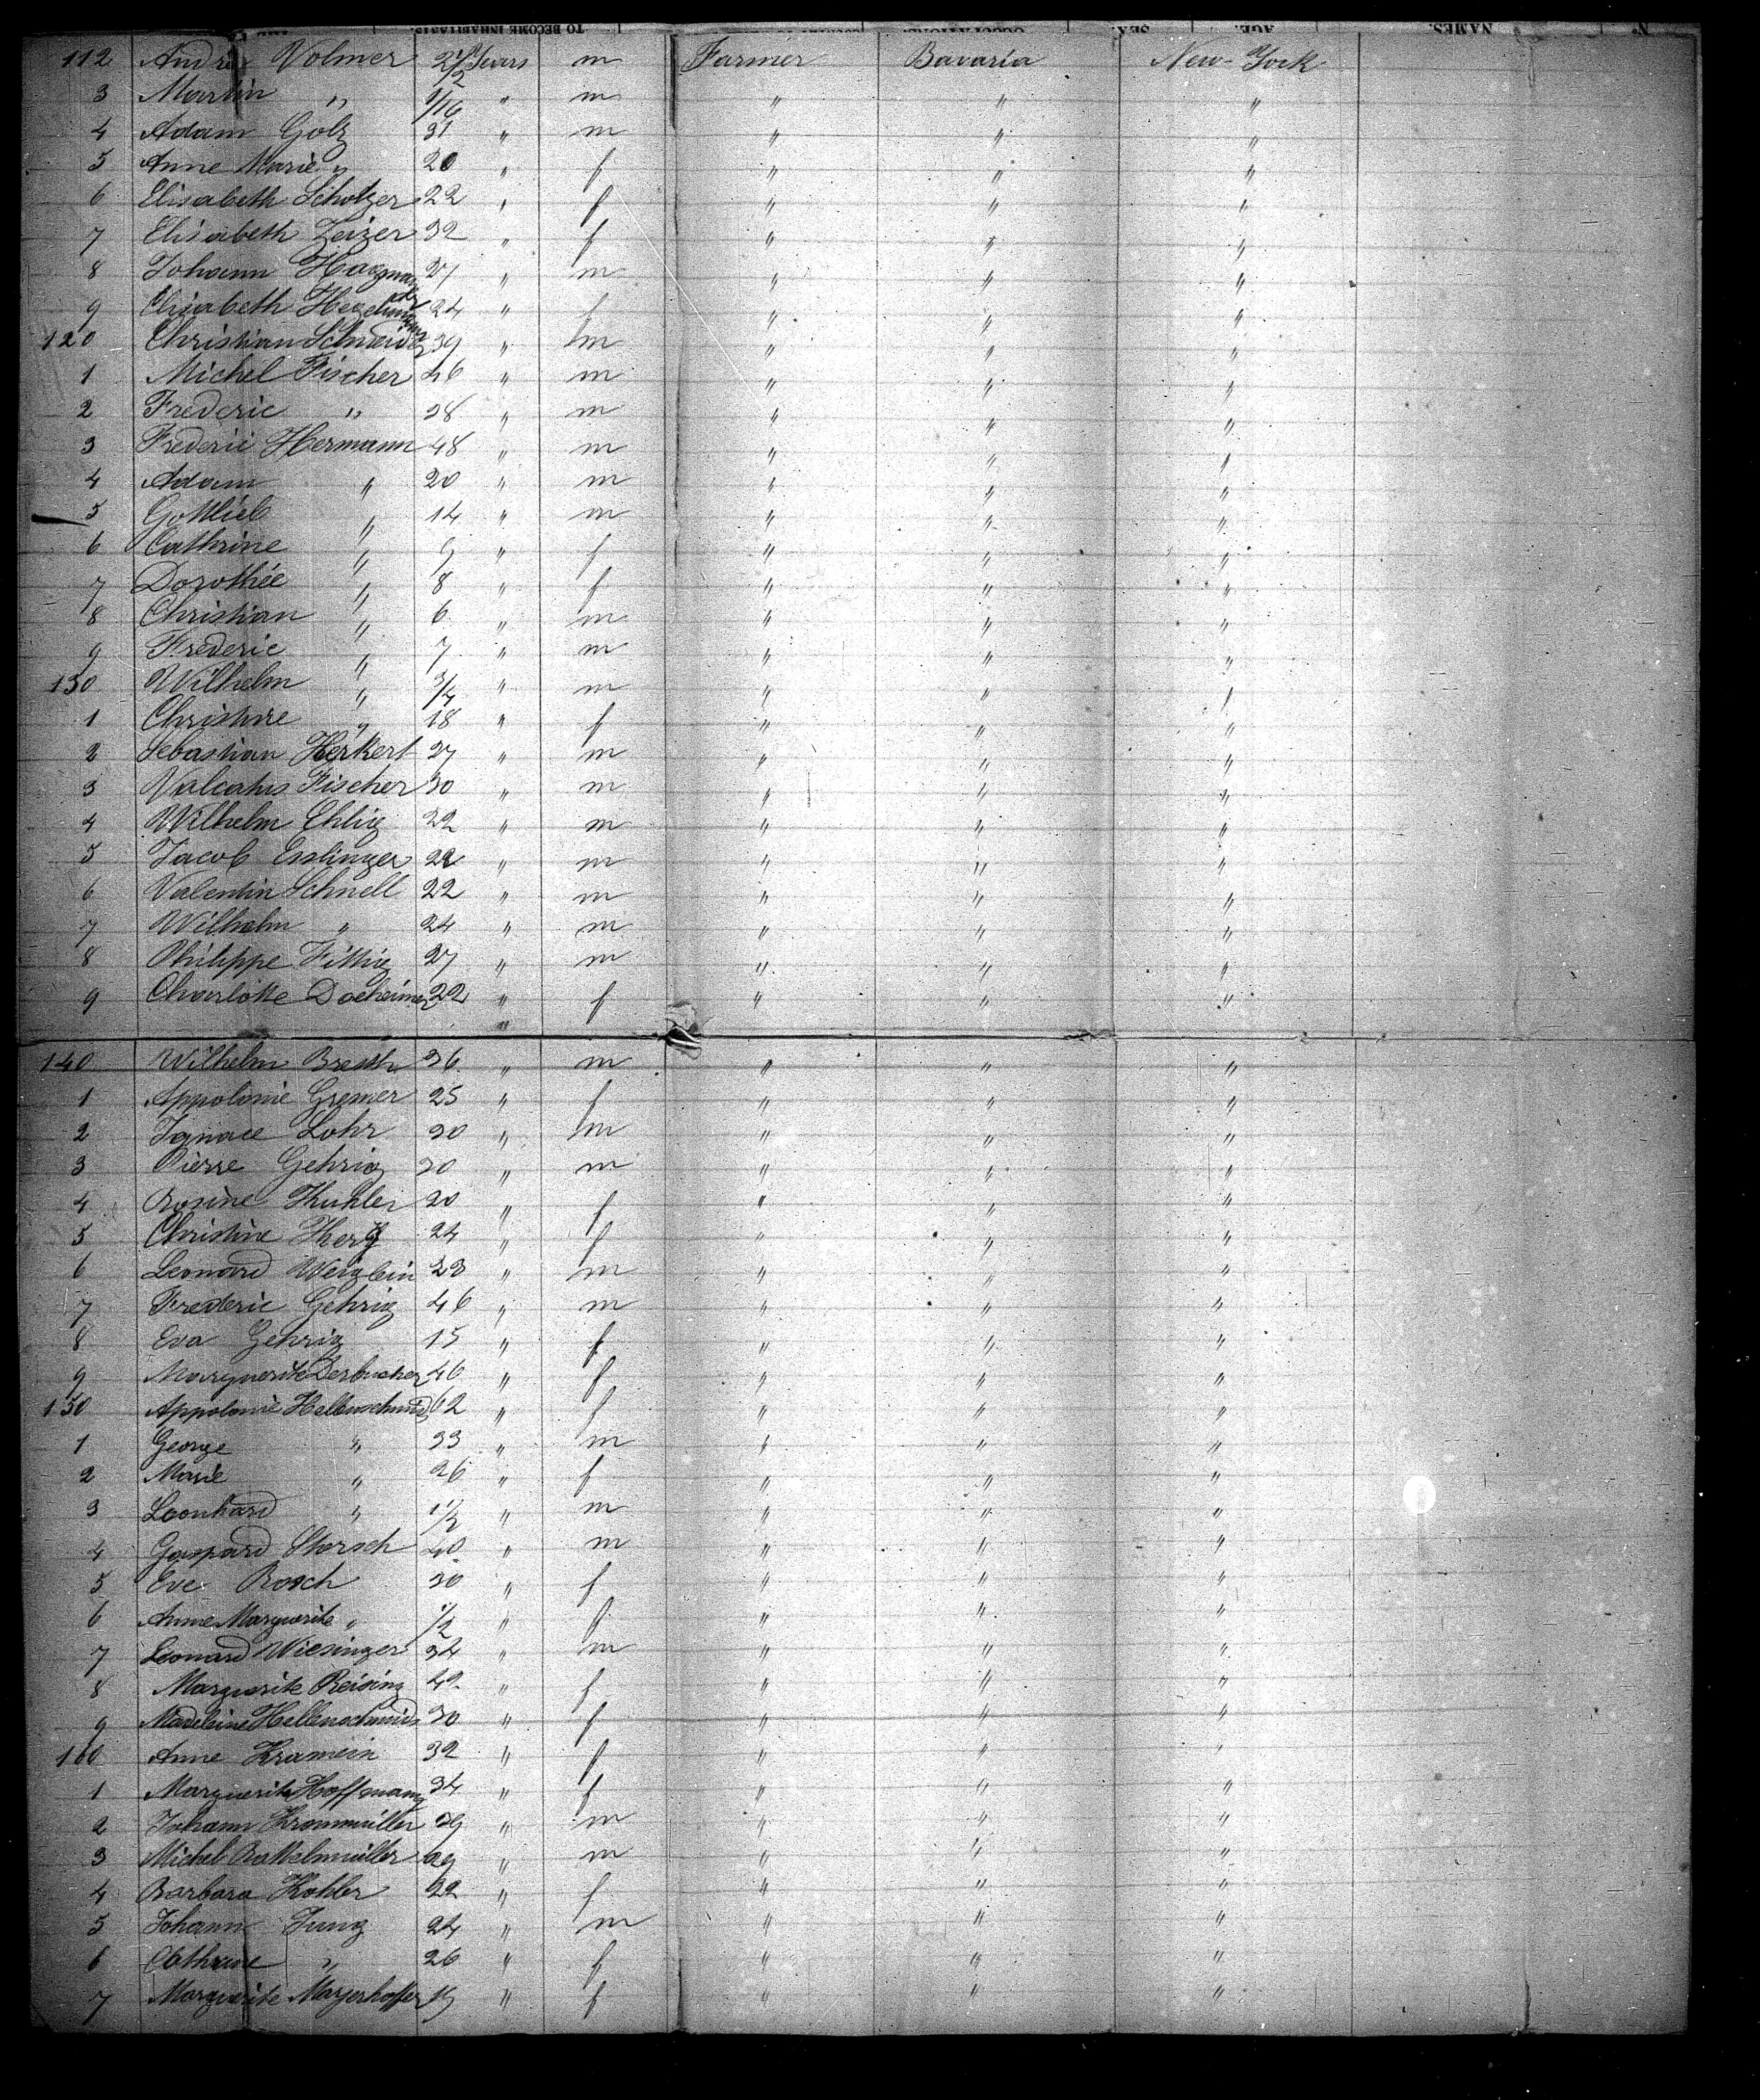 TO BECOME INHABITANTS. OCCUPATIONS. SEX. AGE. NAMES. No
112 Andre Volmer 2 1/2 Years m Farmer Bavaria New-York
3 Martin " " m " " "
4 Adam Golz 31 " m " " "
5 Anne Marie " 20 " f " " "
6 Elisabeth Scholzer 22 " f " " "
7 Elisabeth Zeizer 32 " f " " "
8 Johann 27 " m " " "
9 Elisabeth 24 " f " " "
120 Christian Schneider 39 " m " " "
1 Michel Fischer 46 " m " " "
2 Frederic " 28 " m " " "
3 Frederic Hermann 48 " m " " "
4 Adam " 20 " m " " "
5 Gottlieb " 14 " m " " "
6 Cathrine " 9 " f " " "
7 Dorothée " 8 " f " " "
8 Christian " 6 " m " " "
9 Frederic " 7 " m " " "
130 Wilhelm " 3/4 " m " " "
1 Christine " 18 " f " " "
2 Sebastian Herkert 27 " m " " "
3 Fischer 30 " m " " "
4 Wilhelm Ehlig 22 " m " " "
5 Jacob Esslinger 22 " m " " "
6 Valentin Schnell 22 " m " " "
7 Wilhelm " 24 " m " " "
8 Philippe Fittig 27 " m " " "
9 Charlotte Docheimer 22 " f " " "
"
140 Wilhelm 26 " m " " "
1 Appolonie Gremer 25 " f " " "
2 Ignace Lohr 30 " m " " "
3 Pierre Gehrig 20 " m " " "
4 Rosine Kuhler 20 " f " " "
5 Christine 24 " f " " "
6 Leonard Weiglein 23 " m " " "
7 Frederic Gehrig 46 " m " " "
8 Eva Gehrig 15 " f " " "
9 Marguerite Derbucher 46 " f " " "
150 Appolonie Hellenschmid 62 " f " " "
1 George " 33 " m " " "
2 Marie " 26 " f " " "
3 Leonhard " 1 1/2 " m " " "
4 Gaspard Storsch 40 " m " " "
5 Eve Rosch 30 " f " " "
6 Anne Marguerite " 1/2 " f " " "
7 Leonard Wiesinger 34 " m " " "
8 Marguerite Reising 42 " f " " "
9 Madeleine Hellenschmid 30 " f " " "
160 Anne Kramein 32 " f " " "
1 Marguerite Hoffmann 34 " f " " "
2 Johann Krommüller 39 " m " " "
3 Michel 29 " m " " "
4 Barbara Kohler 22 " f " " "
5 Johann Jung 24 " m " " "
6 Cathrine " 26 " f " " "
7 Marguerite Mayerhoffer 19 " f " " "